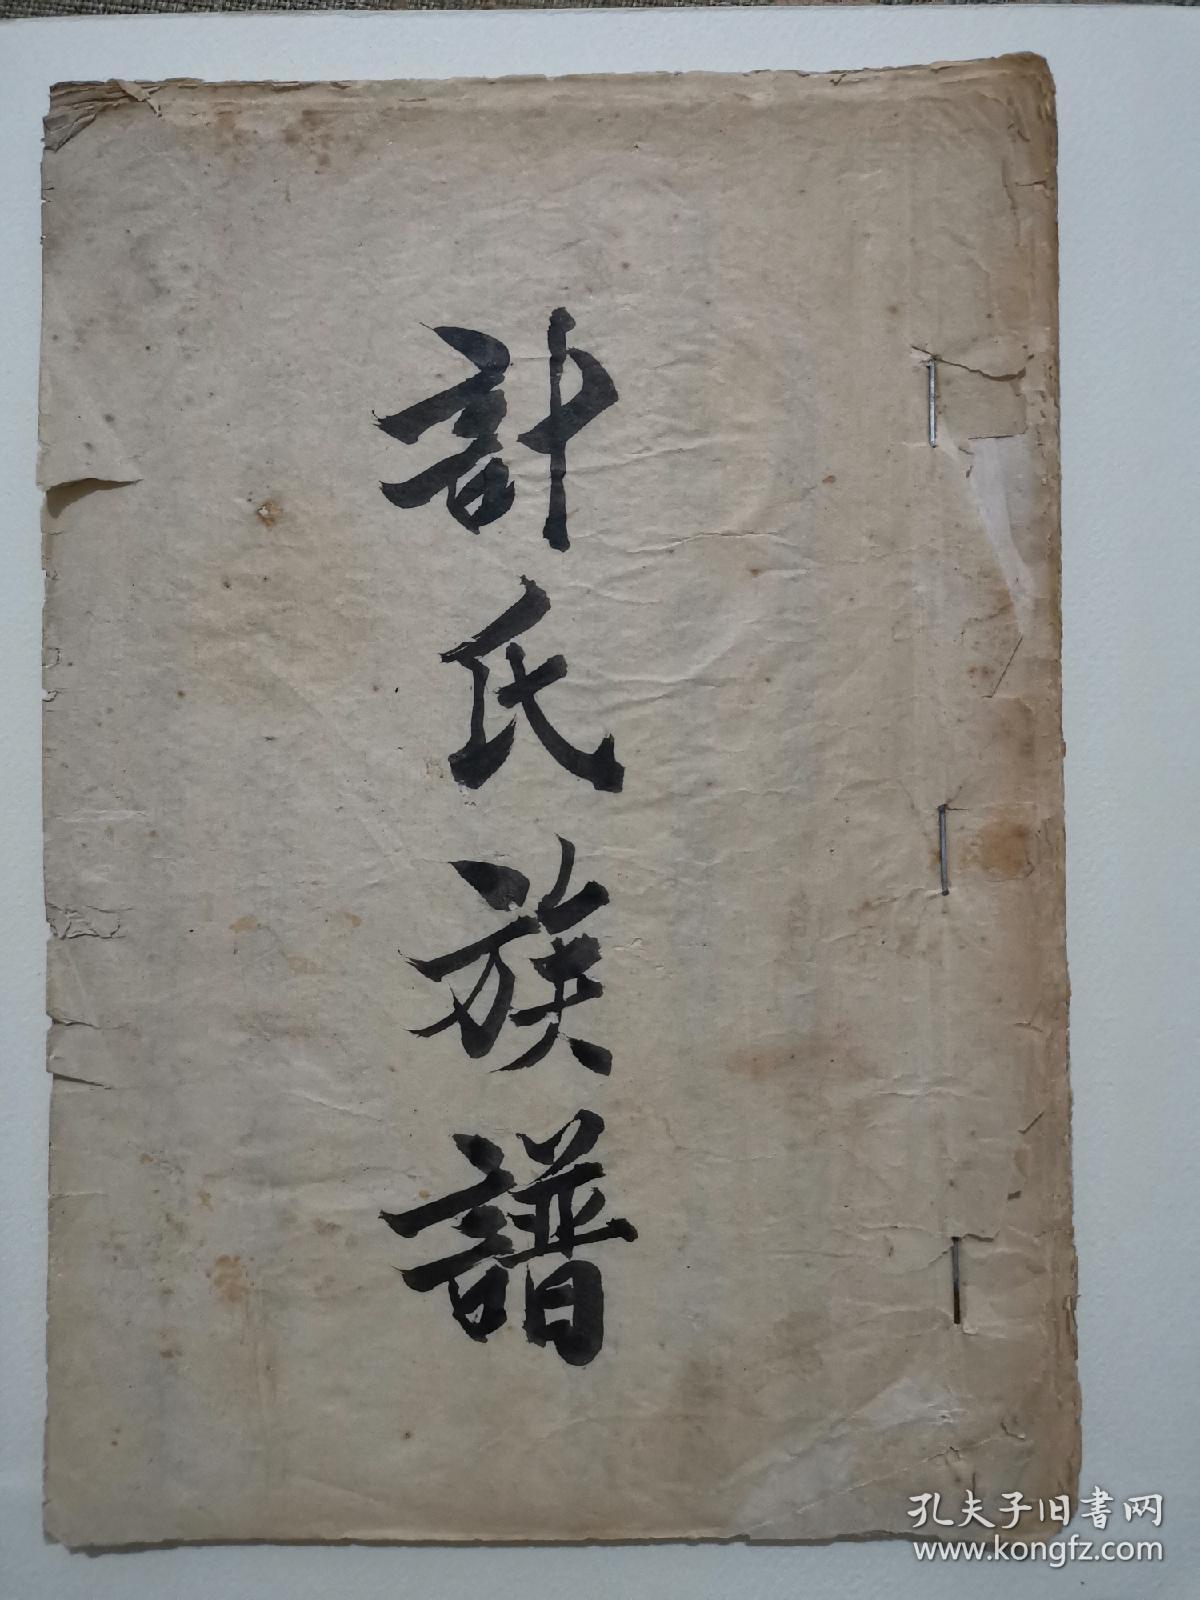 計氏族譜
孔夫子旧書网
www.kongfz.com